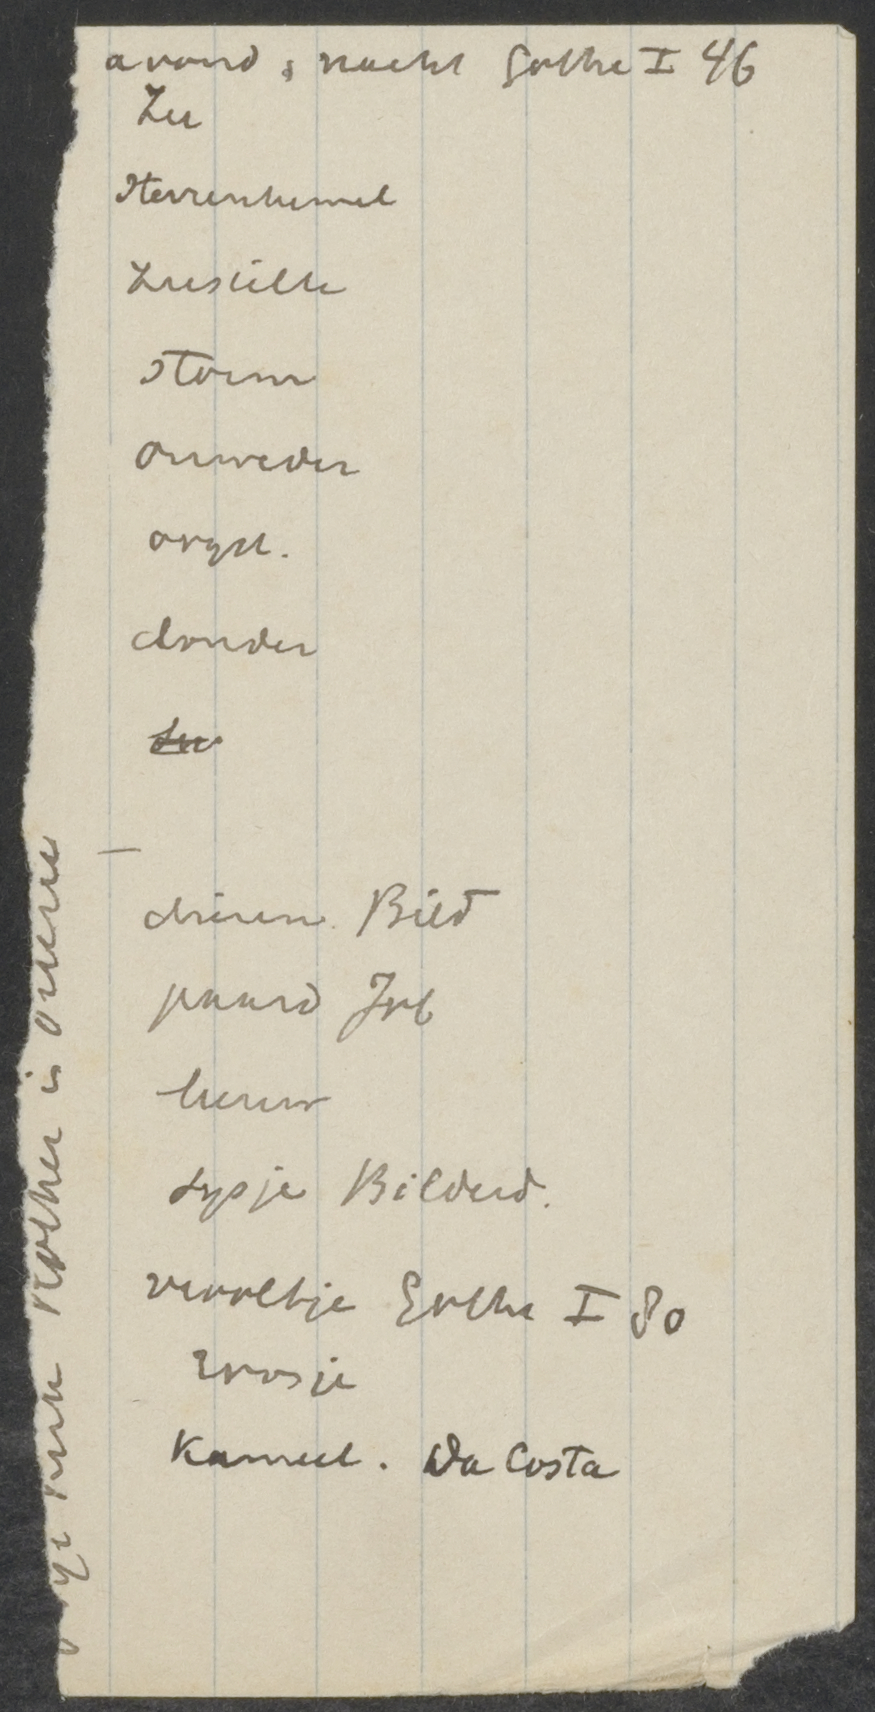 avond, nacht Göthe I 46
Zee
Sterrenhemel
Zeestilte
Storm
Onweder
orgel.
donder
dieren. Bild
paard Job
leeuw
sysje Bilderd.
viooltje Göthe I 80
roosje
Kameel. Da Costa